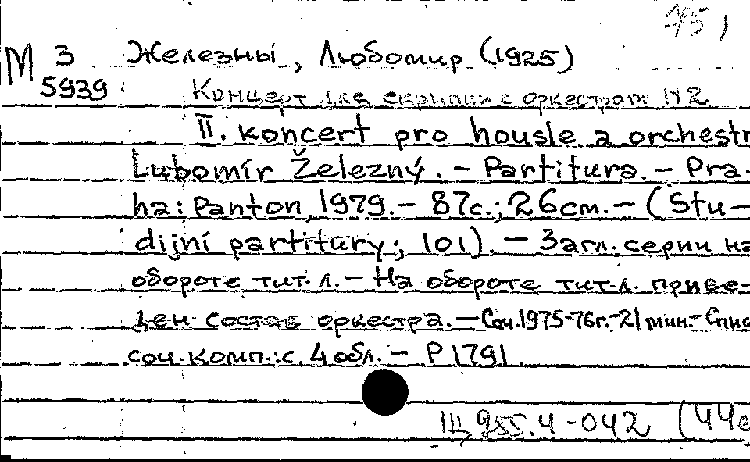 75)
М 3 Железны, Любомир (1925)
5939 Концерт для скрипки с оркестром N2
II. koncert pro housle a orchestr
Lubomír Železný. – Partitura. – Pra-
ha: Panton, 1979. – 87с.; 26см. – (Stu-
dijní partitury; 101). – Загл. серии на
обороте тит. л. – На обороте тит. л. приве-
ден состав оркестра. – Соч. 1975-76г. – 21 мин. – Спис
соч. комп.: с. 4 обл. – P 1791
Щ 955.4-042 (44е